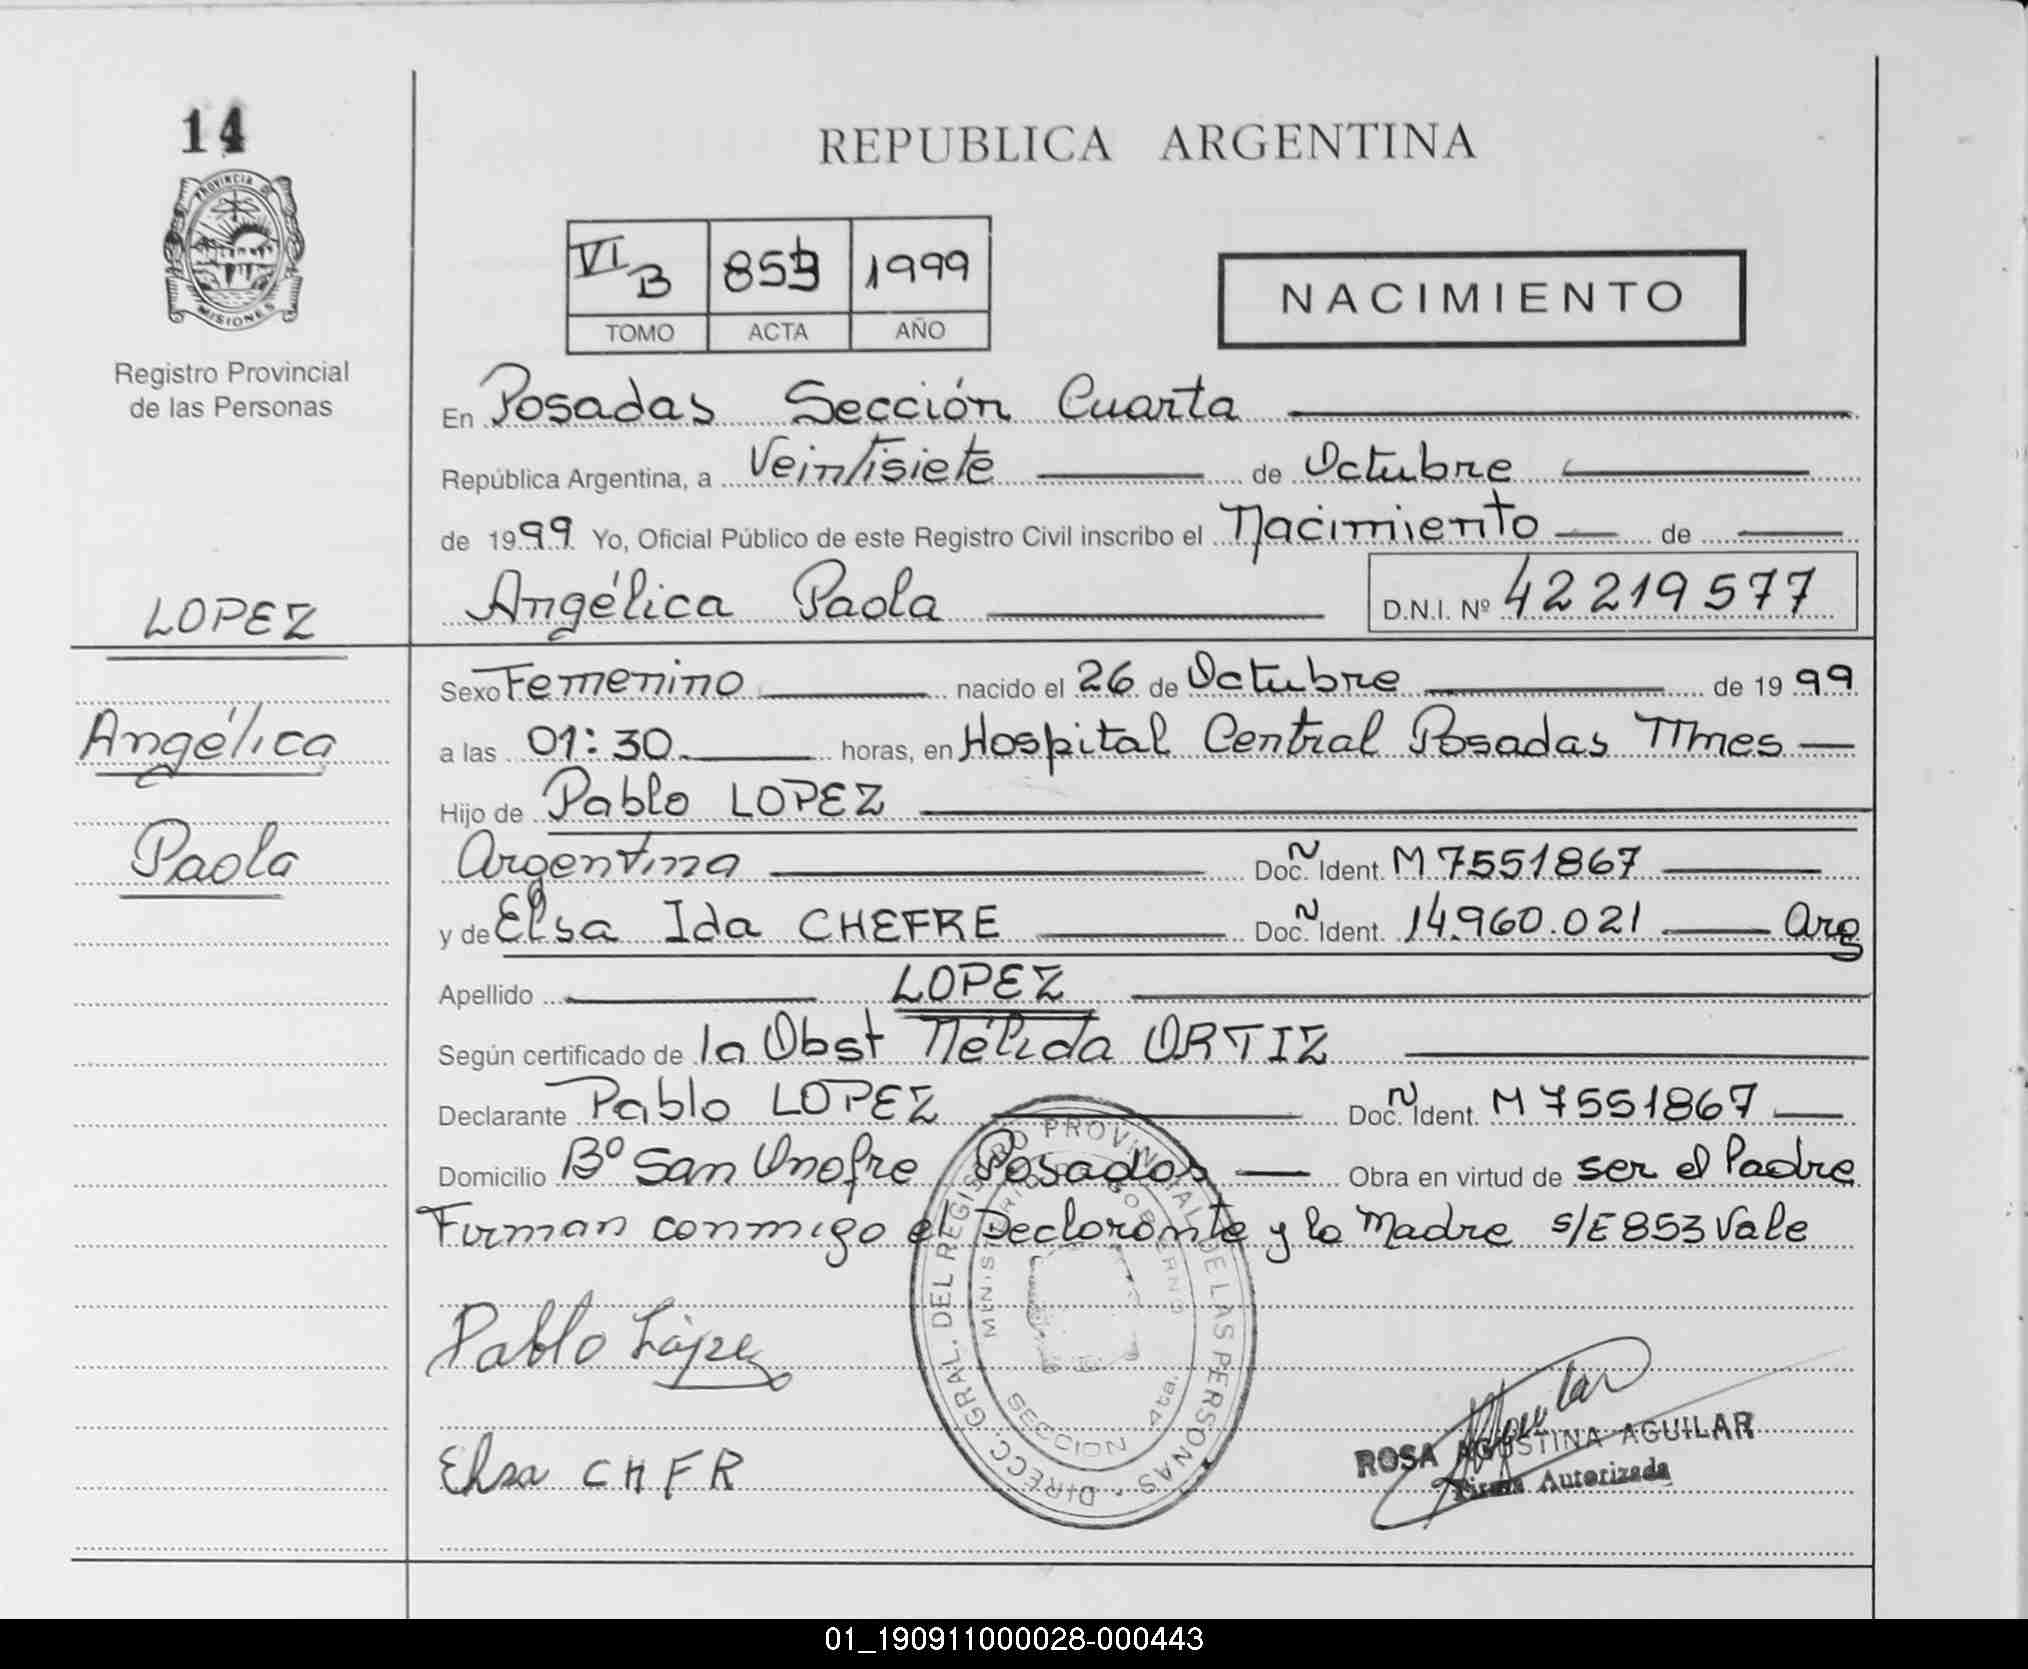 14
PROVINCIA DE
MISIONES
Registro Provincial
de las Personas
LOPEZ
Angélica
Paola
REPUBLICA ARGENTINA
VI B 853 1999
TOMO ACTA AÑO
NACIMIENTO
En Posadas Sección Cuarta
República Argentina, a Veintisiete de Octubre
de 1999 Yo, Oficial Público de este Registro Civil inscribo el Nacimiento de
Angélica Paola D.N.I. Nº 42219577
Sexo Femenino nacido el 26 de Octubre de 1999
a las 01:30 horas, en Hospital Central Posadas Mnes
Hijo de Pablo LOPEZ
Argentina Doc. N Ident. M 7551867
y de Elsa Ida CHEFRE Doc. N Ident. 14.960.021 Arg
Apellido LOPEZ
Según certificado de la Obst Nélida ORTIZ
Declarante Pablo LOPEZ Doc. N Ident. M 7551867
Domicilio Bº San Onofre Posadas Obra en virtud de ser el Padre
Firman conmigo el Declarante y la Madre S/E 853 Vale
Pablo López
Elsa CHFR
DIRECC. GRAL. DEL REGISTRO PROVINCIAL DE LAS PERSONAS
MINISTERIO GOBIERNO
SECCION 4ta.
Aguilar
ROSA AGUSTINA AGUILAR
Firma Autorizada
01_190911000028-000443